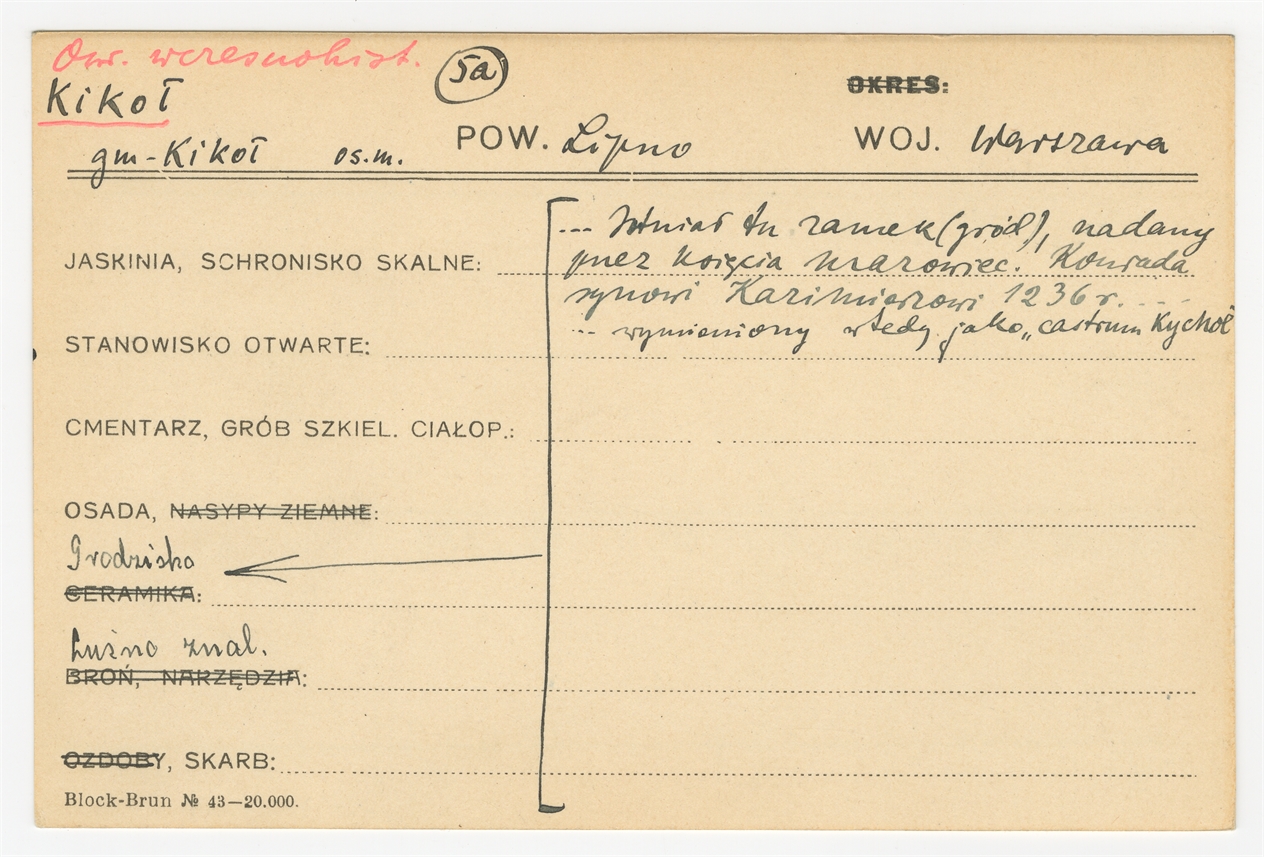 Okr. wczesnohist.
5a
OKRES:
Kikoł
gm-Kikoł os.m. POW. Lipno WOJ. Warszawa
... Istniał tu zamek (gród), nadany
JASKINIA, SCHRONISKO SKALNE:
przez księcia mazowiec. Konrada
synowi Kazimierzowi 1236 r. ....
... wymieniony wtedy jako „castrum Kychol
STANOWISKO OTWARTE:
CMENTARZ, GRÓB SZKIEL. CIAŁOP.:
OSADA, NASYPY ZIEMNE:
Grodzisko
CERAMIKA:
Luźno znal.
BROŃ, NARZĘDZIA:
OZDOBY, SKARB:
Block-Brun № 43—20.000.